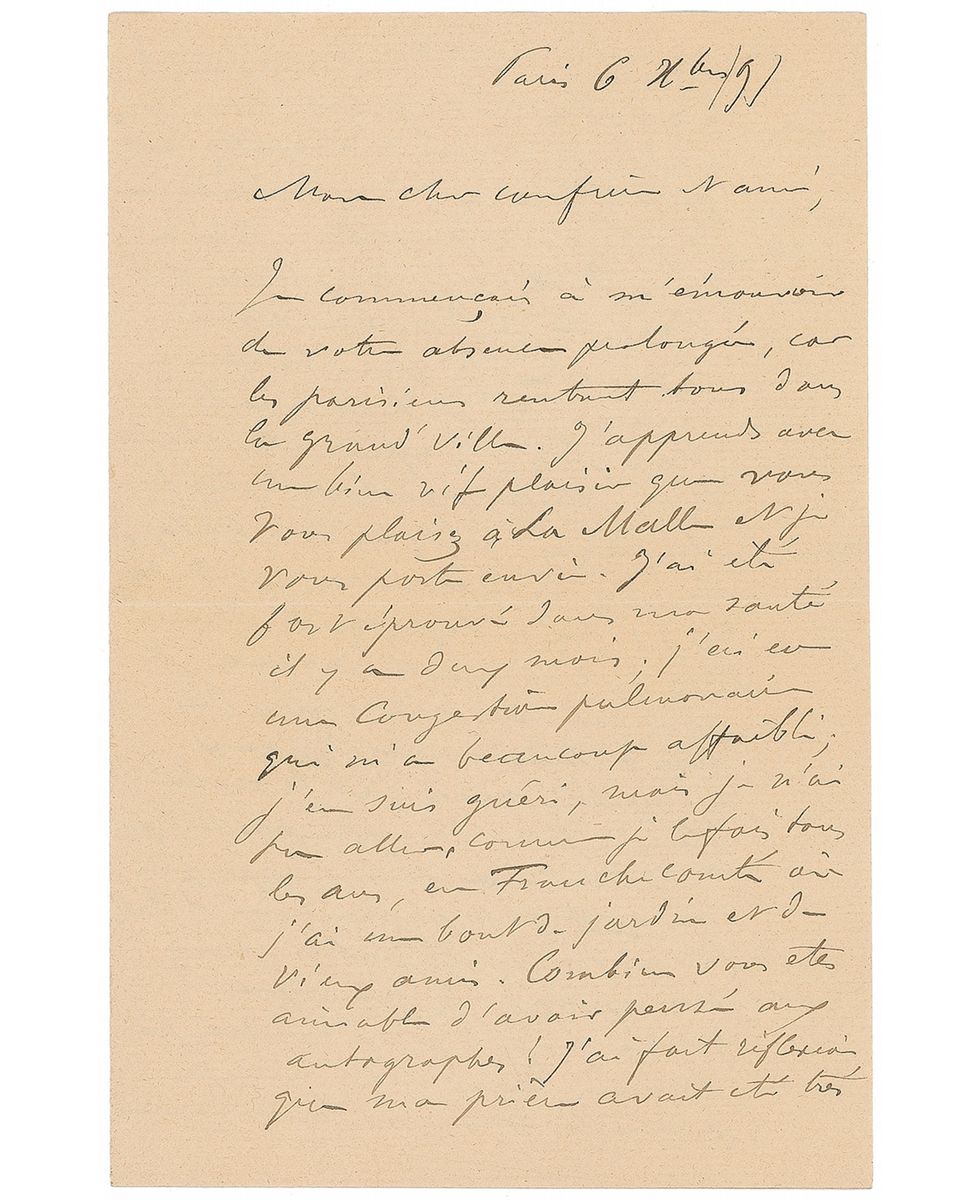 Paris 6 Xbre/97
Mon cher confrère et ami,
Je commençais à m'émouvoir
de votre absence prolongée, car
les parisiens rentrent tous dans
la grand'ville. J'apprends avec
un bien vif plaisir que vous
vous plaisez à La Malle et je
vous porte envie. J'ai été
fort éprouvé dans ma santé
il y a deux mois; j'ai eu
une Congestion pulmonaire
qui m'a beaucoup affaibli;
j'en suis guéri, mais je n'ai
pu aller, comme je le fais tous
les ans, en Franche comté où
j'ai un bout de jardin et de
vieux amis. Combien vous etes
aimable d'avoir pensé aux
autographes! J'ai fait réflexion
que ma prière avait été très